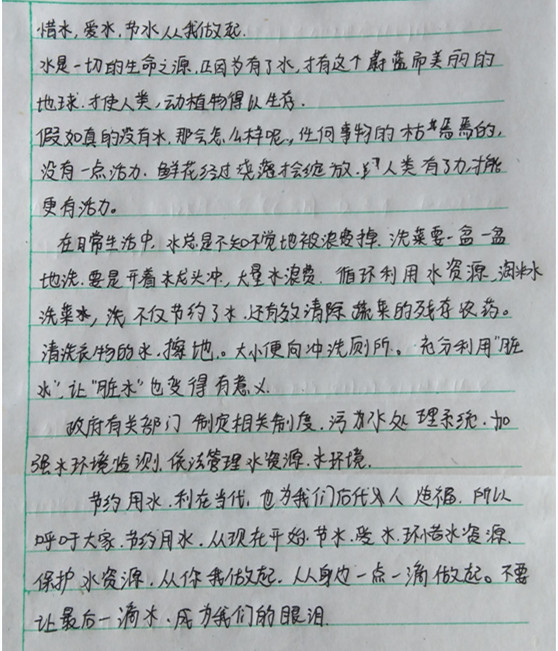 惜水,爱水,节水从我做起.
水是一切的生命之源.正因为有了水,才有这个蔚蓝而美丽的
地球.才使人类,动植物得以生存.
假如真的没有水,那会怎么样呢,任何事物的枯焉焉的,
没有一点活力.鲜花经过浇灌才会绽放.人类有了力才能
更有活力。
在日常生活中,水总是不知不觉地被浪费掉.洗菜要一盆一盆
地洗.要是开着水龙头冲,大量水浪费.循环利用水资源,淘米水
洗菜水,洗不仅节约了水.还有效清除蔬菜的残存农药。
清洗衣物的水,擦地。大小便向冲洗厕所。充分利用"脏
水",让"脏水"也变得有意义.
政府有关部门制定相关制度,污水处理系统.加
强水环境监测,依法管理水资源.水环境.
节约用水,利在当代,也为我们后代人造福.所以
呼吁大家.节约用水.从现在开始,节水.爱水.惜水资源.
保护水资源.从你我做起.从身边一点一滴做起。不要
让最后一滴水,成为我们的眼泪.